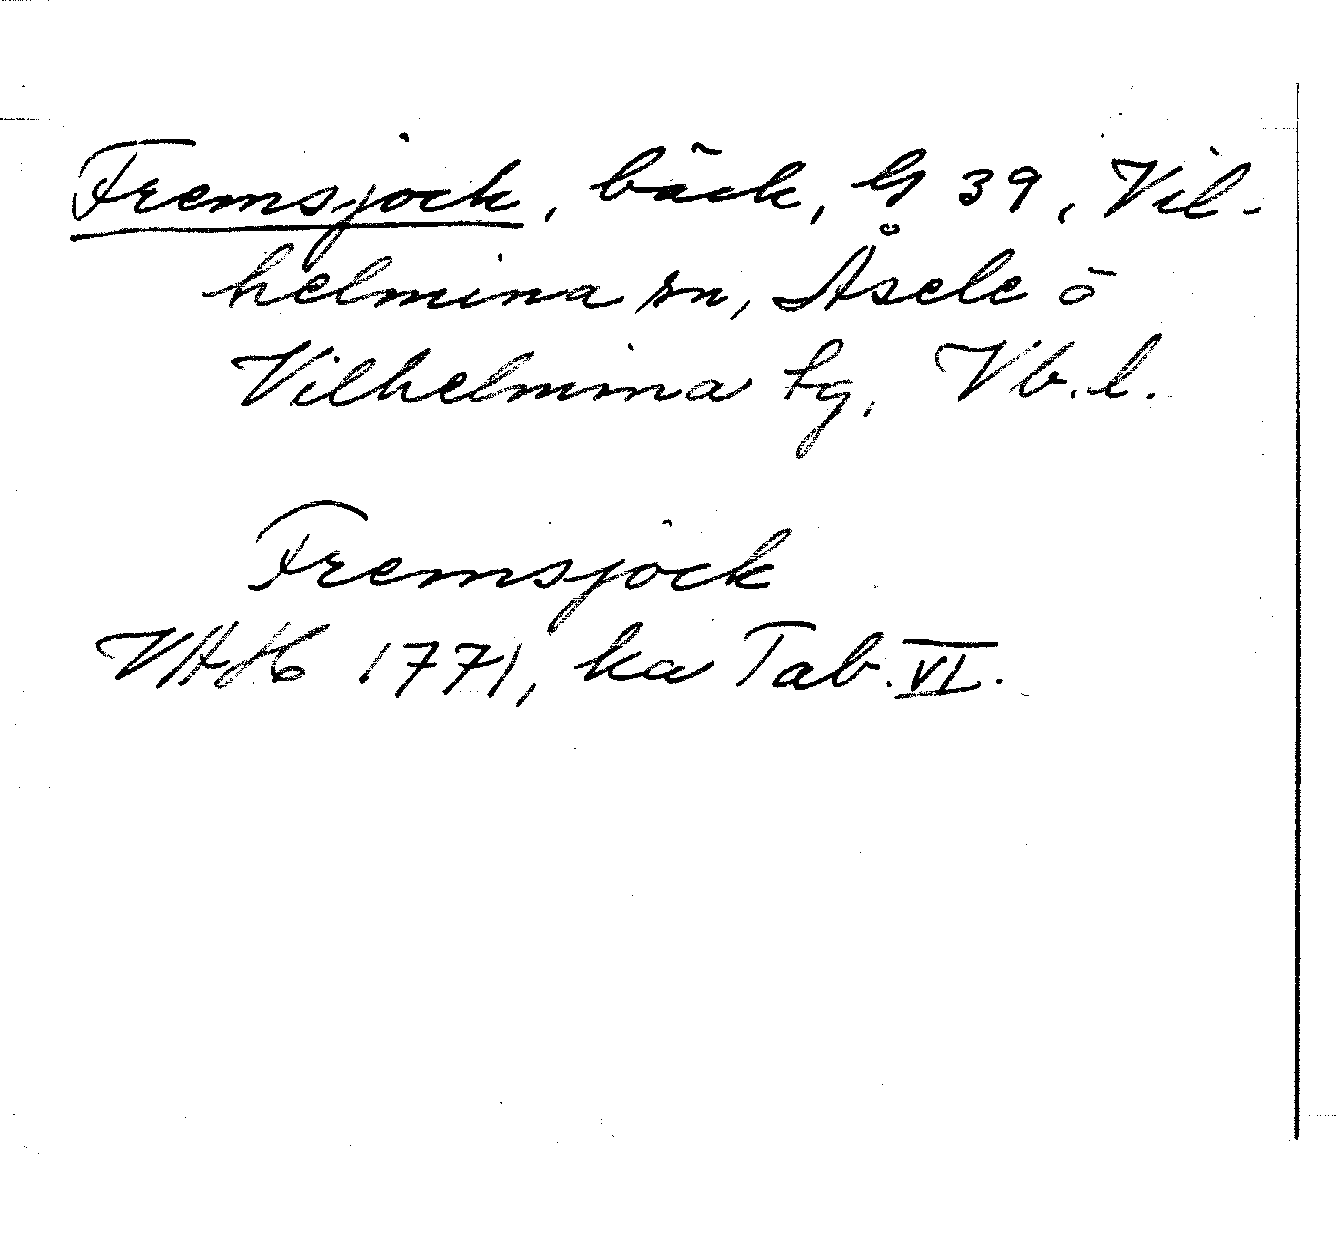 Fremsjock, bäck, G 39, Vil-
helmina sn, Åsele o
Vilhelmina tg, Vb. l.
Fremsjock
VHAH 1771, ka Tab. VI.